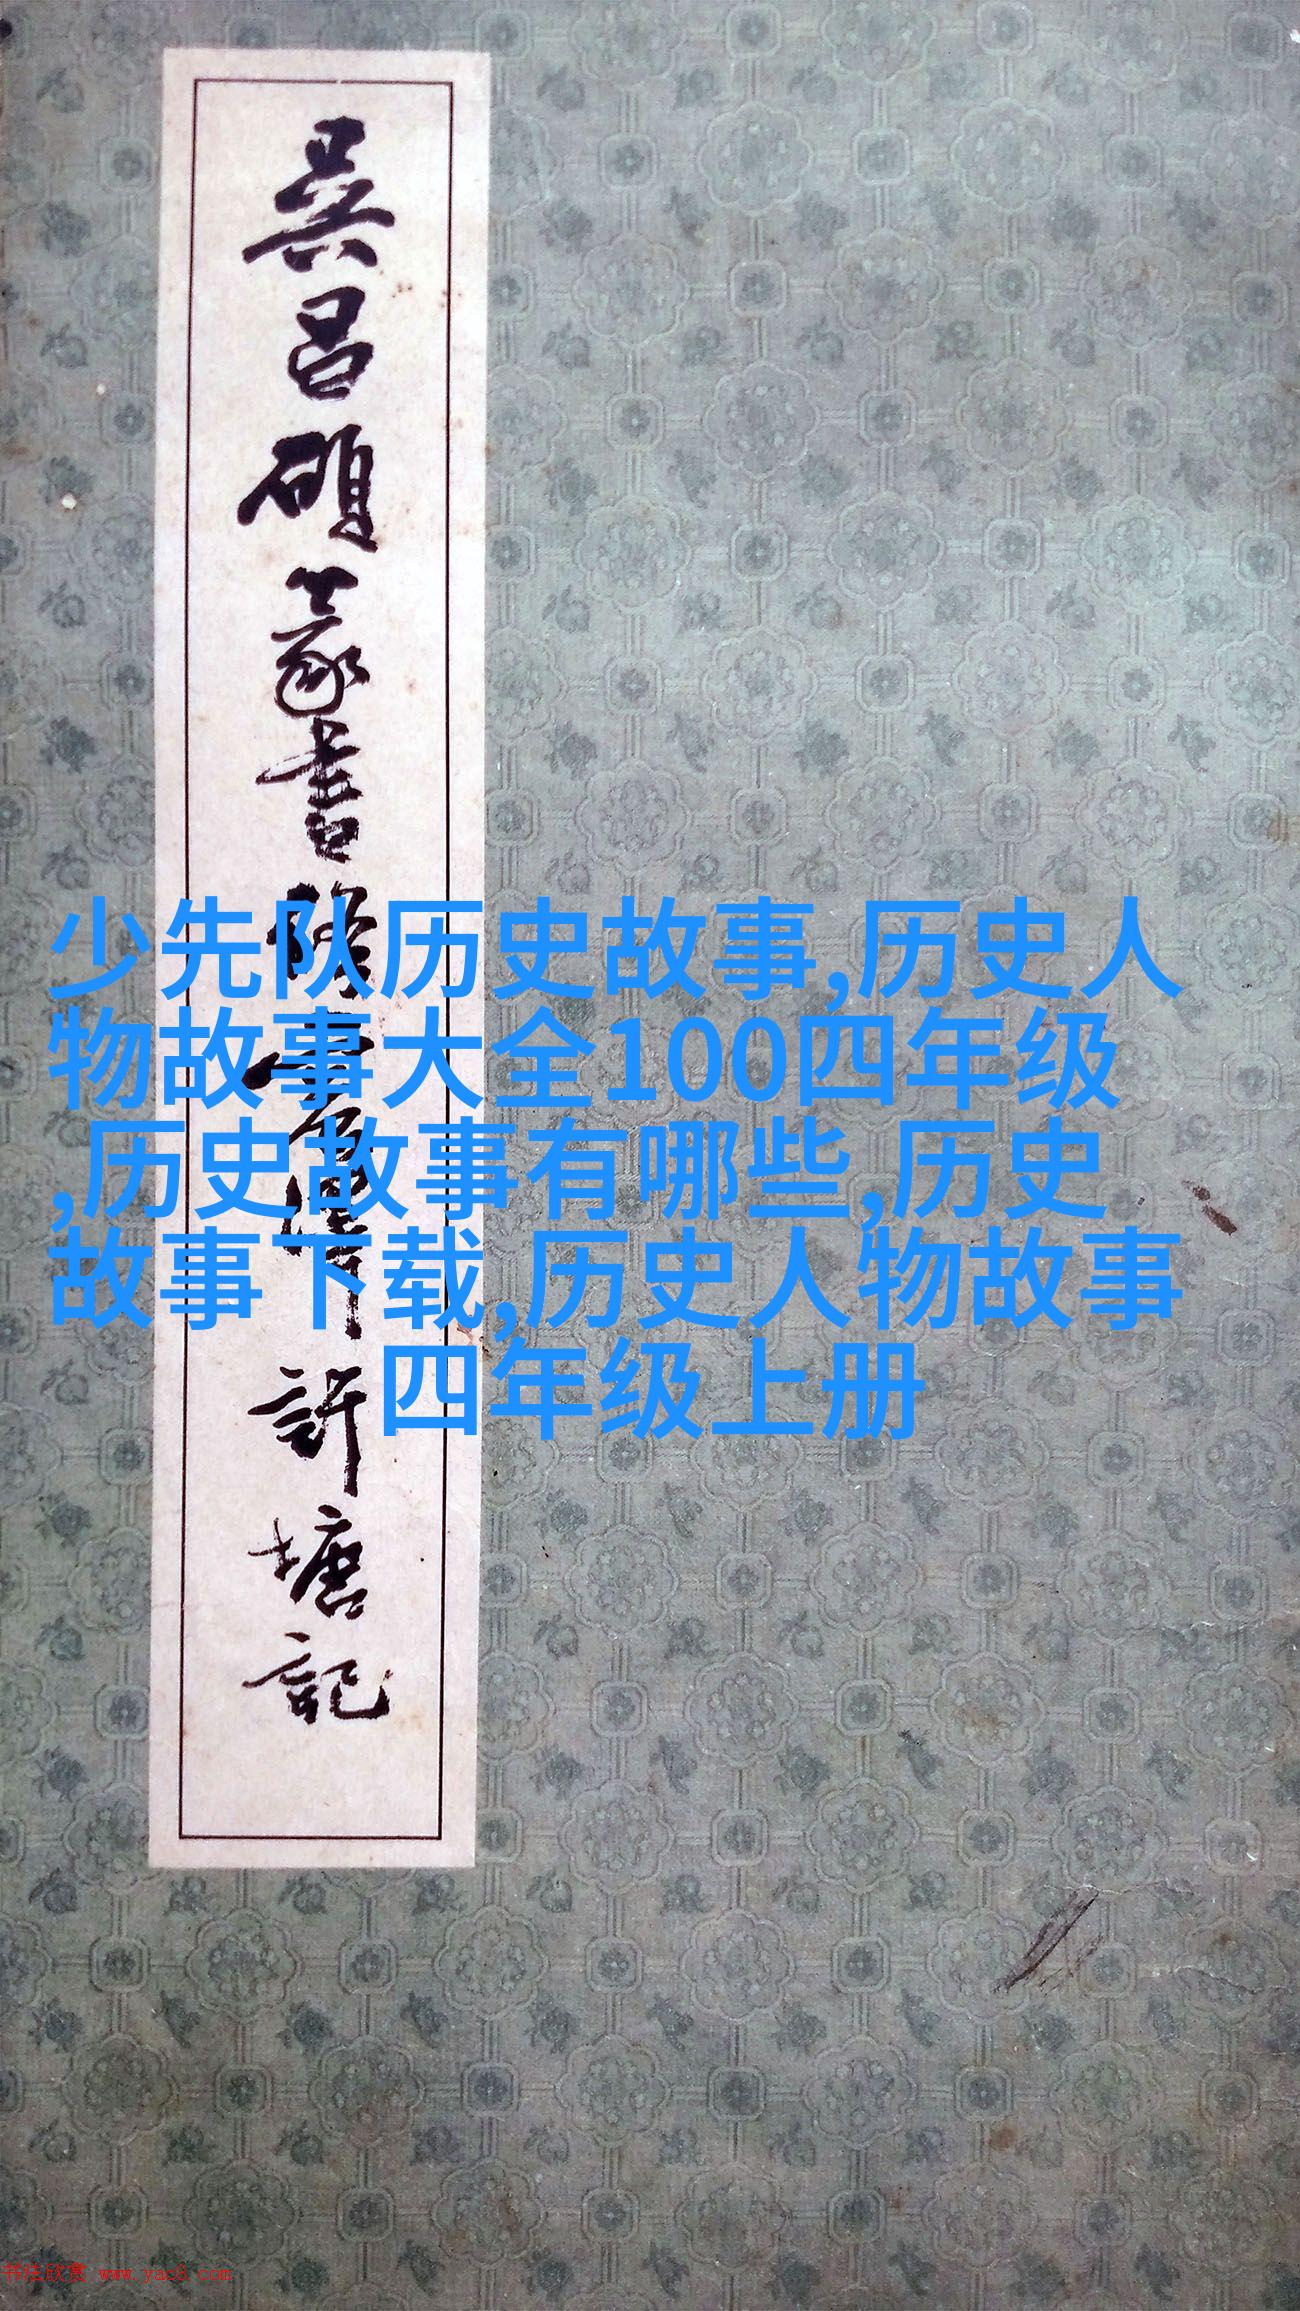 吴昌硕篆书修
许塘記
少先队历史故事,历史人
物故事大全100四年级
,历史故事有哪些,历史
故事下载,历史人物故事
四年级上册
书法欣赏 www.yac8.com